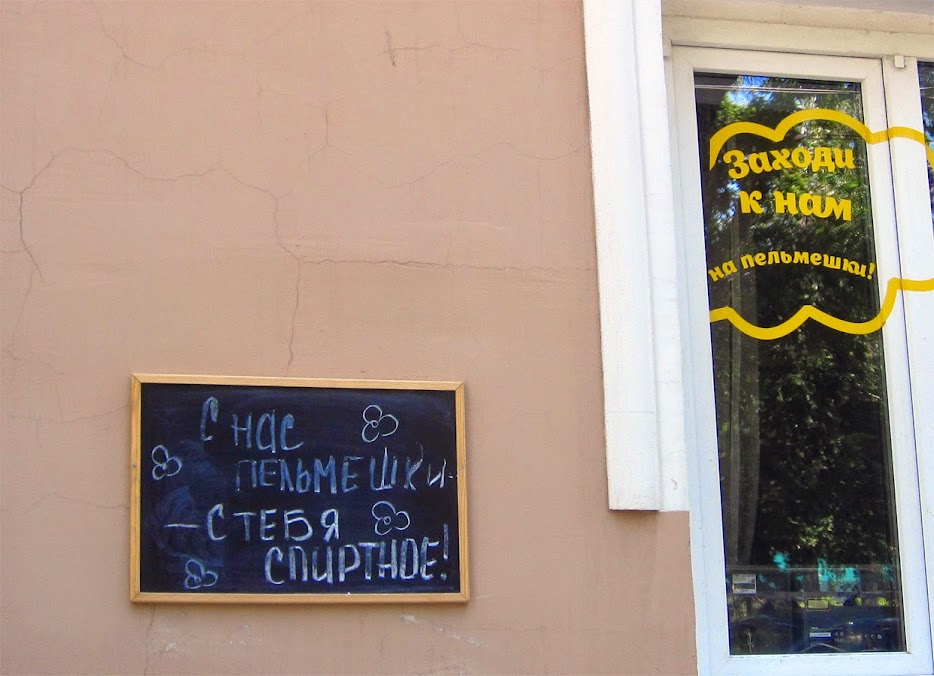 С НАС
ПЕЛЬМЕШКИ-
- С ТЕБЯ
СПИРТНОЕ!
Заходи
к нам
на пельмешки!